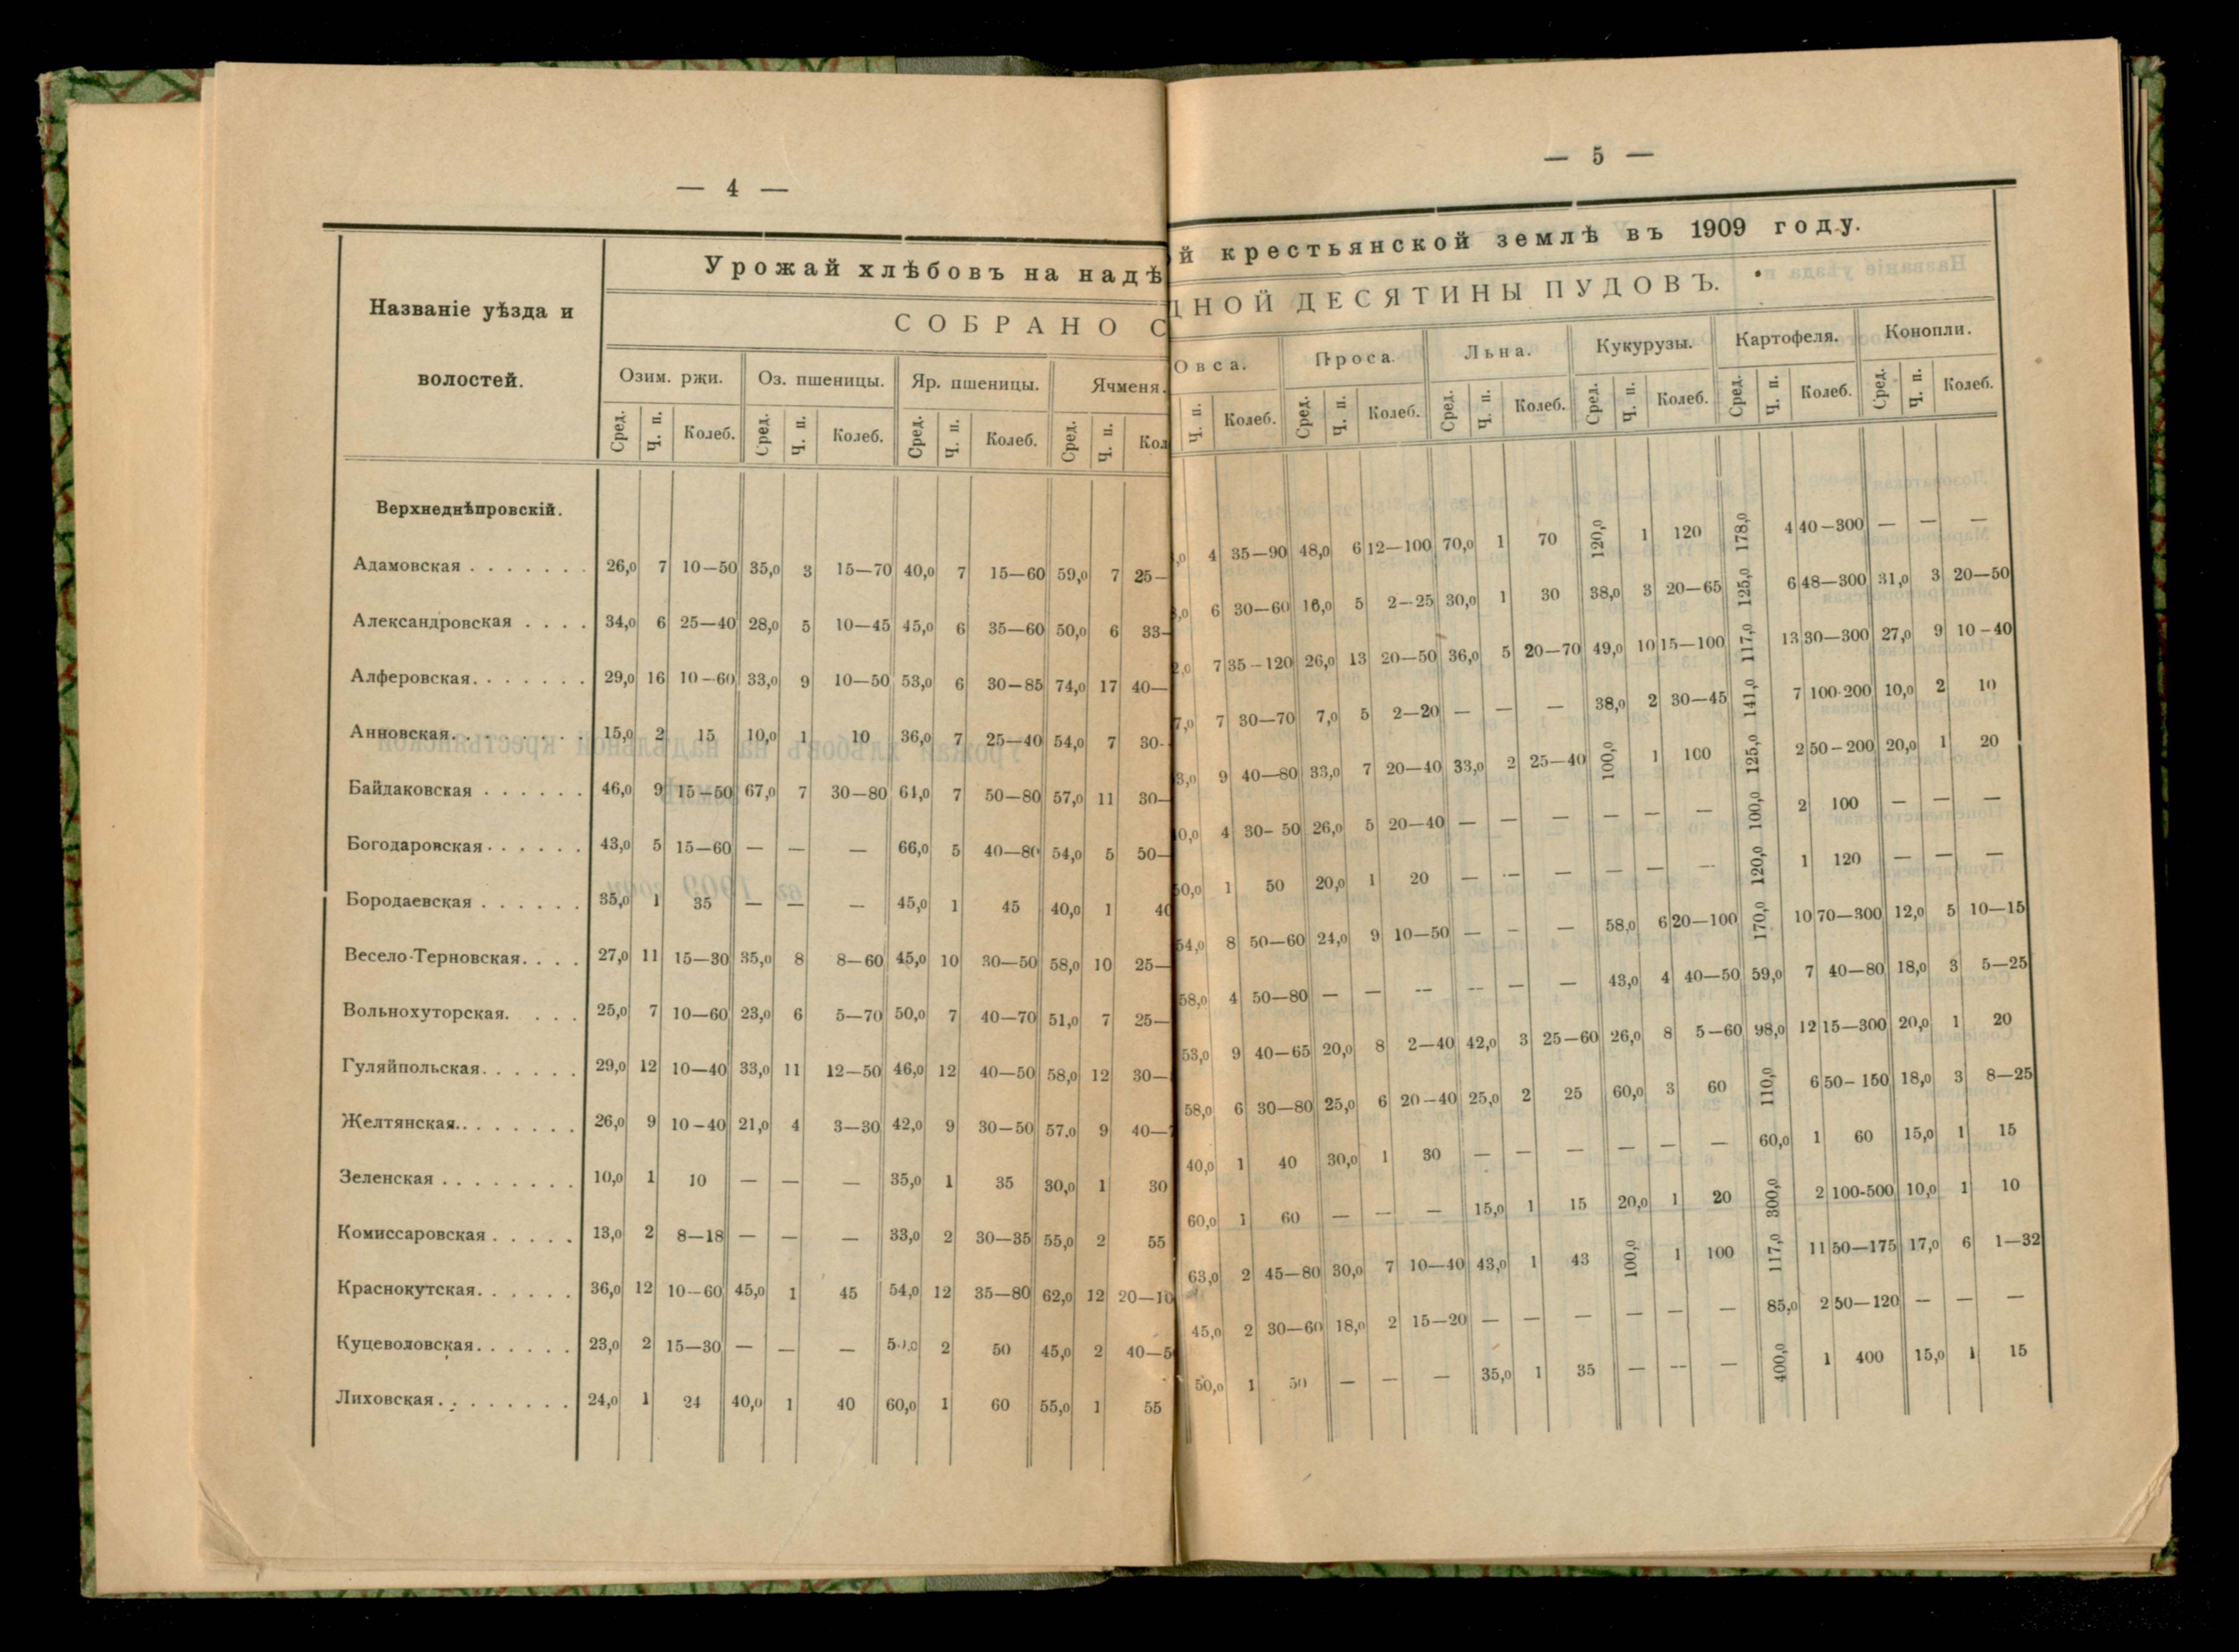 — 4 —
Названіе уѣзда и
волостей.
Урожай хлѣбовъ на надѣ
СОБРАНО С
Озим. ржи. Оз. пшеницы. Яр. пшеницы. Ячменя.
Сред. Ч. п. Колеб. Сред. Ч. п. Колеб. Сред. Ч. п. Колеб. Сред. Ч. п. Кол
Верхнеднѣпровскій.
Адамовская . . . . . . . 26,0 7 10—50 35,0 3 15—70 40,0 7 15—60 59,0 7 25—
Александровская . . . . 34,0 6 25—40 28,0 5 10—45 45,0 6 35—60 50,0 6 33—
Алферовская. . . . . . . 29,0 16 10—60 33,0 9 10—50 53,0 6 30—85 74,0 17 40—
Анновская. . . . . . . . 15,0 2 15 10,0 1 10 36,0 7 25—40 54,0 7 30-
Байдаковская . . . . . . 46,0 9 15—50 67,0 7 30—80 61,0 7 50—80 57,0 11 30—
Богодаровская. . . . . . 43,0 5 15—60 — — — 66,0 5 40—80 54,0 5 50—
Бородаевская . . . . . . 35,0 1 35 — — — 45,0 1 45 40,0 1 40
Весело-Терновская. . . . 27,0 11 15—30 35,0 8 8—60 45,0 10 30—50 58,0 10 25—
Вольнохуторская. . . . 25,0 7 10—60 23,0 6 5—70 50,0 7 40—70 51,0 7 25—
Гуляйпольская. . . . . . 29,0 12 10—40 33,0 11 12—50 46,0 12 40—50 58,0 12 30—
Желтянская.. . . . . . . 26,0 9 10—40 21,0 4 3—30 42,0 9 30—50 57,0 9 40—
Зеленская . . . . . . . . 10,0 1 10 — — — 35,0 1 35 30,0 1 30
Комиссаровская . . . . . 13,0 2 8—18 — — — 33,0 2 30—35 55,0 2 55
Краснокутская. . . . . . 36,0 12 10—60 45,0 1 45 54,0 12 35—80 62,0 12 20—10
Куцеволовская. . . . . . 23,0 2 15—30 — — — 50,0 2 50 45,0 2 40—5
Лиховская. . . . . . . . 24,0 1 24 40,0 1 40 60,0 1 60 55,0 1 55
— 5 —
й крестьянской землѣ въ 1909 году.
ДНОЙ ДЕСЯТИНЫ ПУДОВЪ.
Овса. Проса. Льна. Кукурузы. Картофеля. Конопли.
Ч. п. Колеб. Сред. Ч. п. Колеб. Сред. Ч. п. Колеб. Сред. Ч. п. Колеб. Сред. Ч. п. Колеб. Сред. Ч. п. Колеб.
,0 4 35—90 48,0 6 12—100 70,0 1 70 120,0 1 120 178,0 4 40—300 — — —
,0 6 30—60 16,0 5 2—25 30,0 1 30 38,0 3 20—65 125,0 6 48—300 31,0 3 20—50
2,0 7 35—120 26,0 13 20—50 36,0 5 20—70 49,0 10 15—100 117,0 13 30—300 27,0 9 10—40
7,0 7 30—70 7,0 5 2—20 — — — 38,0 2 30—45 141,0 7 100-200 10,0 2 10
3,0 9 40—80 33,0 7 20—40 33,0 2 25—40 100,0 1 100 125,0 2 50—200 20,0 1 20
0,0 4 30—50 26,0 5 20—40 — — — — — — 100,0 2 100 — — —
50,0 1 50 20,0 1 20 — — — — — — 120,0 1 120 — — —
54,0 8 50—60 24,0 9 10—50 — — — 58,0 6 20—100 170,0 10 70—300 12,0 5 10—15
58,0 4 50—80 — — — — — — 43,0 4 40—50 59,0 7 40—80 18,0 3 5—25
53,0 9 40—65 20,0 8 2—40 42,0 3 25—60 26,0 8 5—60 98,0 12 15—300 20,0 1 20
58,0 6 30—80 25,0 6 20—40 25,0 2 25 60,0 3 60 110,0 6 50—150 18,0 3 8—25
40,0 1 40 30,0 1 30 — — — — — — 60,0 1 60 15,0 1 15
60,0 1 60 — — — 15,0 1 15 20,0 1 20 300,0 2 100-500 10,0 1 10
63,0 2 45—80 30,0 7 10—40 43,0 1 43 100,0 1 100 117,0 11 50—175 17,0 6 1—32
45,0 2 30—60 18,0 2 15—20 — — — — — — 85,0 2 50—120 — — —
50,0 1 50 — — — 35,0 1 35 — — — 400,0 1 400 15,0 1 15